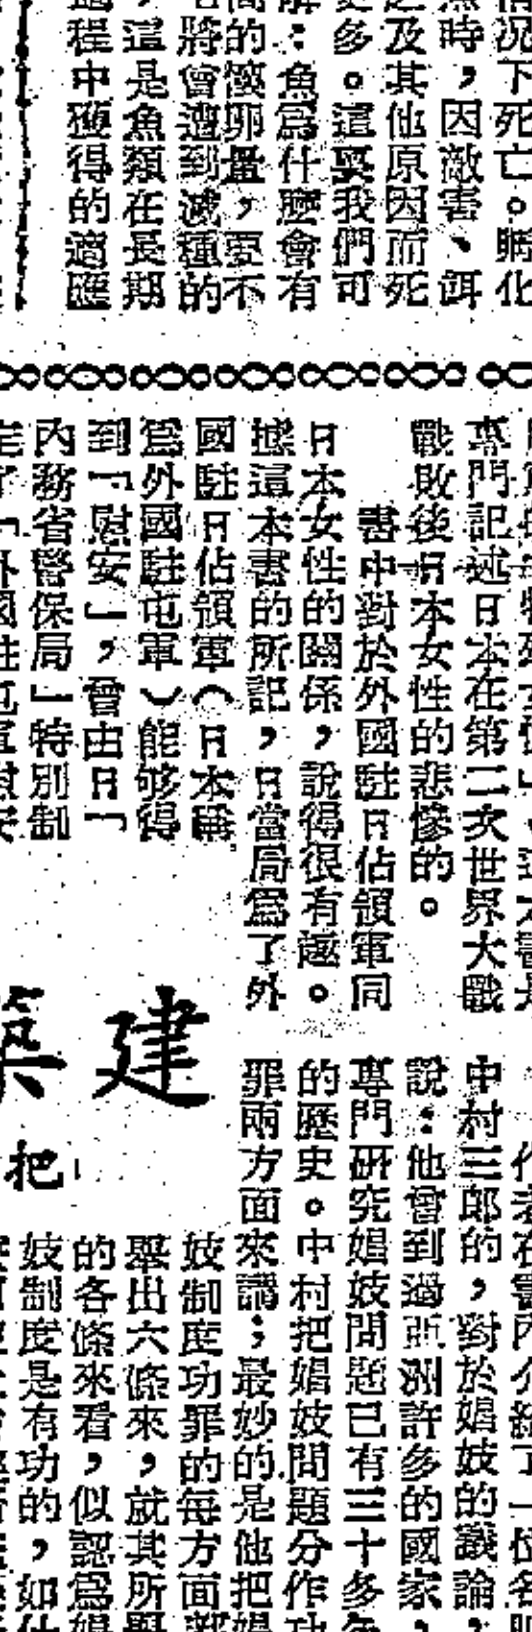 況下死亡。孵化
時，因敵害、餌
及其他原因而死
多。這裏我們可
：魚爲什麼會有
的懷卵量，要不
將會遭到滅種的
這是魚類在長期
程中獲得的適應
專門記述日本在第二次世界大戰
戰敗後日本女性的悲慘的。
書中對於外國駐日佔領軍同
日本女性的關係，說得很有趣。
據這本書的所記，日當局爲了外
國駐日佔領軍（日本稱
爲外國駐屯軍）能够得
到「慰安」，曾由日「
內務省警保局」特別制
中村三郎的，對於娼妓的議論，
說：他曾到過亞洲許多的國家，
專門研究娼妓問題已有三十多年
的歷史。中村把娼妓問題分作功
罪兩方面來講；最妙的是他把娼
妓制度功罪的每方面都
舉出六條來，就其所舉
的各條來看，似認爲娼
妓制度是有功的，如
建築
把